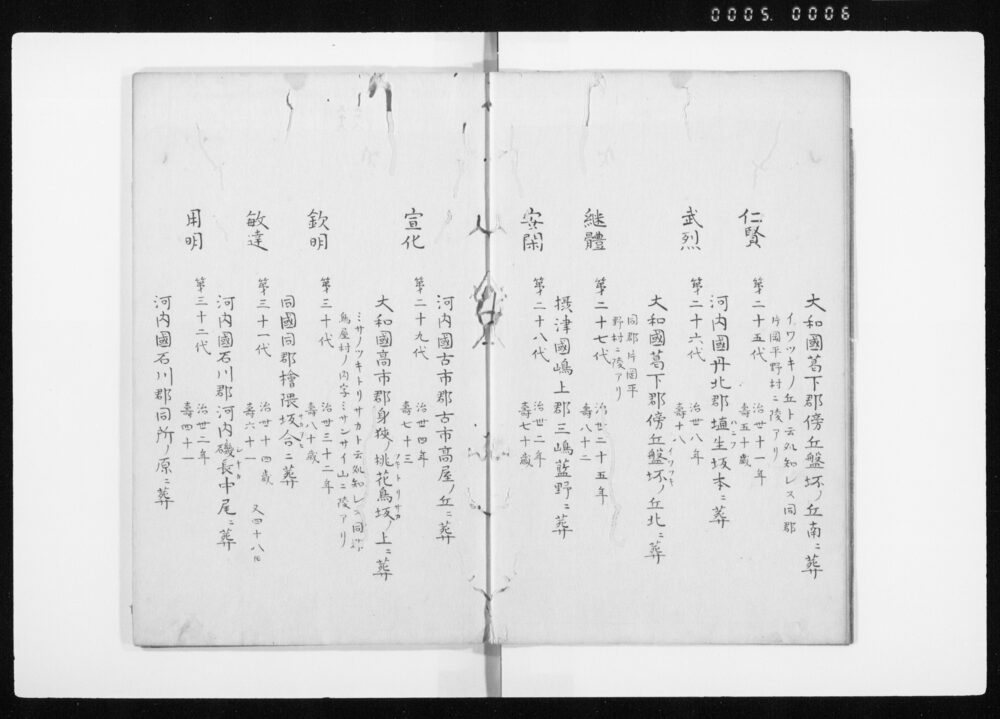 0005. 0006
大和國葛下郡傍丘盤坏ノ丘南ニ葬
イワツキノ丘ト云処知レス同郡
片岡平野村ニ陵アリ
仁賢
第二十五代
治世十一年
壽五十歳
河内國丹北郡埴生坂本ニ葬
ハニフ
武烈
第二十六代
治世八年
壽十八
大和國葛下郡傍丘盤坏ノ丘北ニ葬
イワツキ
同郡片岡平
野村ニ陵アリ
継體
第二十七代
治世二十五年
壽八十二
摂津國嶋上郡三嶋藍野ニ葬
安閑
第二十八代
治世二年
壽七十歳
河内國古市郡古市高屋ノ丘ニ葬
宣化
第二十九代
治世四年
壽七十三
大和國高市郡身狹ノ桃花鳥坂ノ上ニ葬
ツキトリサカ
ミサノツキトリサカト云処知レス同郡
鳥屋村ノ内字ミサンサイ山ニ陵アリ
欽明
第三十代
治世三十二年
壽八十歳
同國同郡檜隈坂合ニ葬
サカアヒ
敏達
第三十一代
治世十四歳
壽六十一
又四十八
河内國石川郡河内磯長中尾ニ葬
シナカ
用明
第三十二代
治世二年
壽四十一
河内國石川郡同所ノ原ニ葬